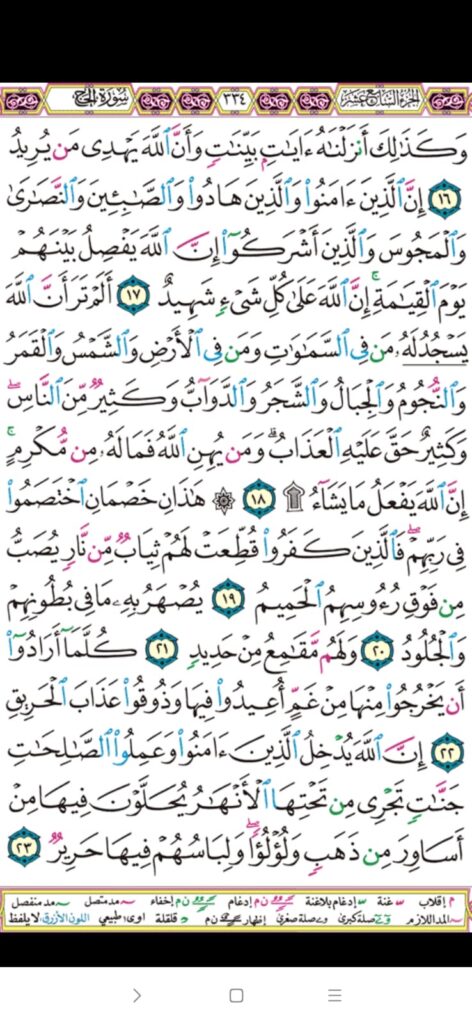 الجزء السابع عشر ٣٣٤ سورة الحج
وَكَذَٰلِكَ أَنزَلْنَٰهُ ءَايَٰتٍۭ بَيِّنَٰتٍ وَأَنَّ ٱللَّهَ يَهْدِى مَن يُرِيدُ
١٦ إِنَّ ٱلَّذِينَ ءَامَنُوا۟ وَٱلَّذِينَ هَادُوا۟ وَٱلصَّٰبِـِٔينَ وَٱلنَّصَٰرَىٰ
وَٱلْمَجُوسَ وَٱلَّذِينَ أَشْرَكُوٓا۟ إِنَّ ٱللَّهَ يَفْصِلُ بَيْنَهُمْ
يَوْمَ ٱلْقِيَٰمَةِ ۚ إِنَّ ٱللَّهَ عَلَىٰ كُلِّ شَىْءٍ شَهِيدٌ ١٧ أَلَمْ تَرَ أَنَّ ٱللَّهَ
يَسْجُدُ لَهُۥ مَن فِى ٱلسَّمَٰوَٰتِ وَمَن فِى ٱلْأَرْضِ وَٱلشَّمْسُ وَٱلْقَمَرُ
وَٱلنُّجُومُ وَٱلْجِبَالُ وَٱلشَّجَرُ وَٱلدَّوَآبُّ وَكَثِيرٌ مِّنَ ٱلنَّاسِ ۖ
وَكَثِيرٌ حَقَّ عَلَيْهِ ٱلْعَذَابُ ۗ وَمَن يُهِنِ ٱللَّهُ فَمَا لَهُۥ مِن مُّكْرِمٍ ۚ
إِنَّ ٱللَّهَ يَفْعَلُ مَا يَشَآءُ ۩ ١٨ ۞ هَٰذَانِ خَصْمَانِ ٱخْتَصَمُوا۟
فِى رَبِّهِمْ ۖ فَٱلَّذِينَ كَفَرُوا۟ قُطِّعَتْ لَهُمْ ثِيَابٌ مِّن نَّارٍ يُصَبُّ
مِن فَوْقِ رُءُوسِهِمُ ٱلْحَمِيمُ ١٩ يُصْهَرُ بِهِۦ مَا فِى بُطُونِهِمْ
وَٱلْجُلُودُ ٢٠ وَلَهُم مَّقَٰمِعُ مِنْ حَدِيدٍ ٢١ كُلَّمَآ أَرَادُوٓا۟
أَن يَخْرُجُوا۟ مِنْهَا مِنْ غَمٍّ أُعِيدُوا۟ فِيهَا وَذُوقُوا۟ عَذَابَ ٱلْحَرِيقِ
٢٢ إِنَّ ٱللَّهَ يُدْخِلُ ٱلَّذِينَ ءَامَنُوا۟ وَعَمِلُوا۟ ٱلصَّٰلِحَٰتِ
جَنَّٰتٍ تَجْرِى مِن تَحْتِهَا ٱلْأَنْهَٰرُ يُحَلَّوْنَ فِيهَا مِنْ
أَسَاوِرَ مِن ذَهَبٍ وَلُؤْلُؤًا ۖ وَلِبَاسُهُمْ فِيهَا حَرِيرٌ ٢٣
م إقلاب غنة إدغام بلاغنة ن م إدغام ن م إخفاء مد متصل مد منفصل
المد اللازم صلة كبرى صلة صغرى إظهار ن م قلقلة اوى طبيعي اللون الأزرق لا يلفظ